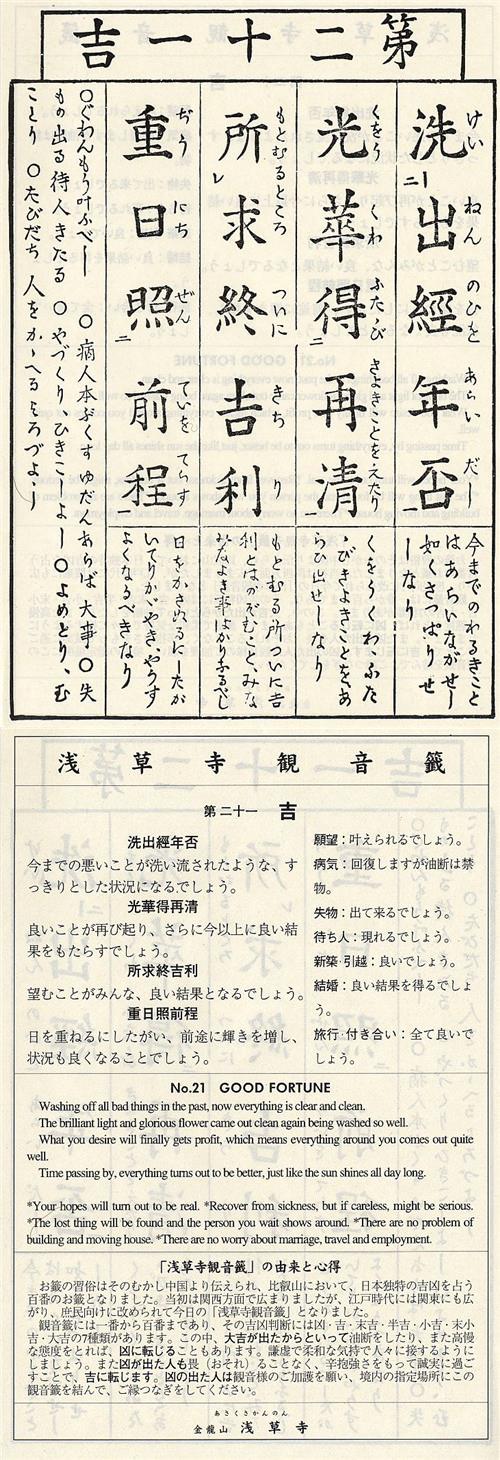 第二十一吉
洗出經年否
けいねんのひをあらいだ
光華得再清
くをうくわふたゝびきよきことをえたり
所求終吉利
もとむるところついにきちり
重日照前程
ぢうにちぜんていをてらす
今までのわるきこと
はあらいながせし
如くさつぱりせ
しなり
くをうくわふた
ゝびきよきことをあ
らひ出せしなり
もとむる所ついに吉
利とはのぞむこと、みな
みなよき事ばかりなるべし
日をかさぬるにしたが
いてりかゞやき、やうす
よくなるべきなり
〇ぐわんもう叶ふべし 〇病人本ぶくす ゆだんあらば 大事 〇失
もの出る待人きたる 〇やづくりひきこしよし 〇よめどり、む
ことり 〇たびだち 人をかゝへるよろづよし
浅草寺観音籤
第二十一 吉
洗出經年否
今までの悪いことが洗い流されたような、す
っきりとした状況になるでしょう。
光華得再清
良いことが再び起り、さらに今以上に良い結
果をもたらすでしょう。
所求終吉利
望むことがみんな、良い結果となるでしょう。
重日照前程
日を重ねるにしたがい、前途に輝きを増し、
状況も良くなることでしょう。
願望：叶えられるでしょう。
病気：回復しますが油断は禁
物。
失物：出て来るでしょう。
待ち人：現れるでしょう。
新築・引越：良いでしょう。
結婚：良い結果を得るでしょ
う。
旅行・付き合い：全て良いで
しょう。
No.21 GOOD FORTUNE
Washing off all bad things in the past, now everything is clear and clean.
The brilliant light and glorious flower came out clean again being washed so well.
What you desire will finally gets profit, which means everything around you comes out quite
well.
Time passing by, everything turns out to be better, just like the sun shines all day long.
*Your hopes will turn out to be real. *Recover from sickness, but if careless, might be serious.
*The lost thing will be found and the person you wait shows around. *There are no problem of
building and moving house. *There are no worry about marriage, travel and employment.
「浅草寺観音籤」の由来と心得
お籤の習俗はそのむかし中国より伝えられ、比叡山において、日本独特の吉凶を占う
百番のお籤となりました。当初は関西方面で広まりましたが、江戸時代には関東にも広
がり、庶民向けに改められて今日の「浅草寺観音籤」となりました。
観音籤には一番から百番まであり、その吉凶判断には凶・吉・末吉・半吉・小吉・末小
吉・大吉の7種類があります。この中、大吉が出たからといって油断をしたり、また高慢
な態度をとれば、凶に転じることもあります。謙虚で柔和な気持で人々に接するように
しましょう。また凶が出た人も畏（おそれ）ることなく、辛抱強さをもって誠実に過ご
すことで、吉に転じます。凶の出た人は観音様のご加護を願い、境内の指定場所にこの
観音籤を結んで、ご縁つなぎをしてください。
あさくさかんのん
金龍山 浅草寺